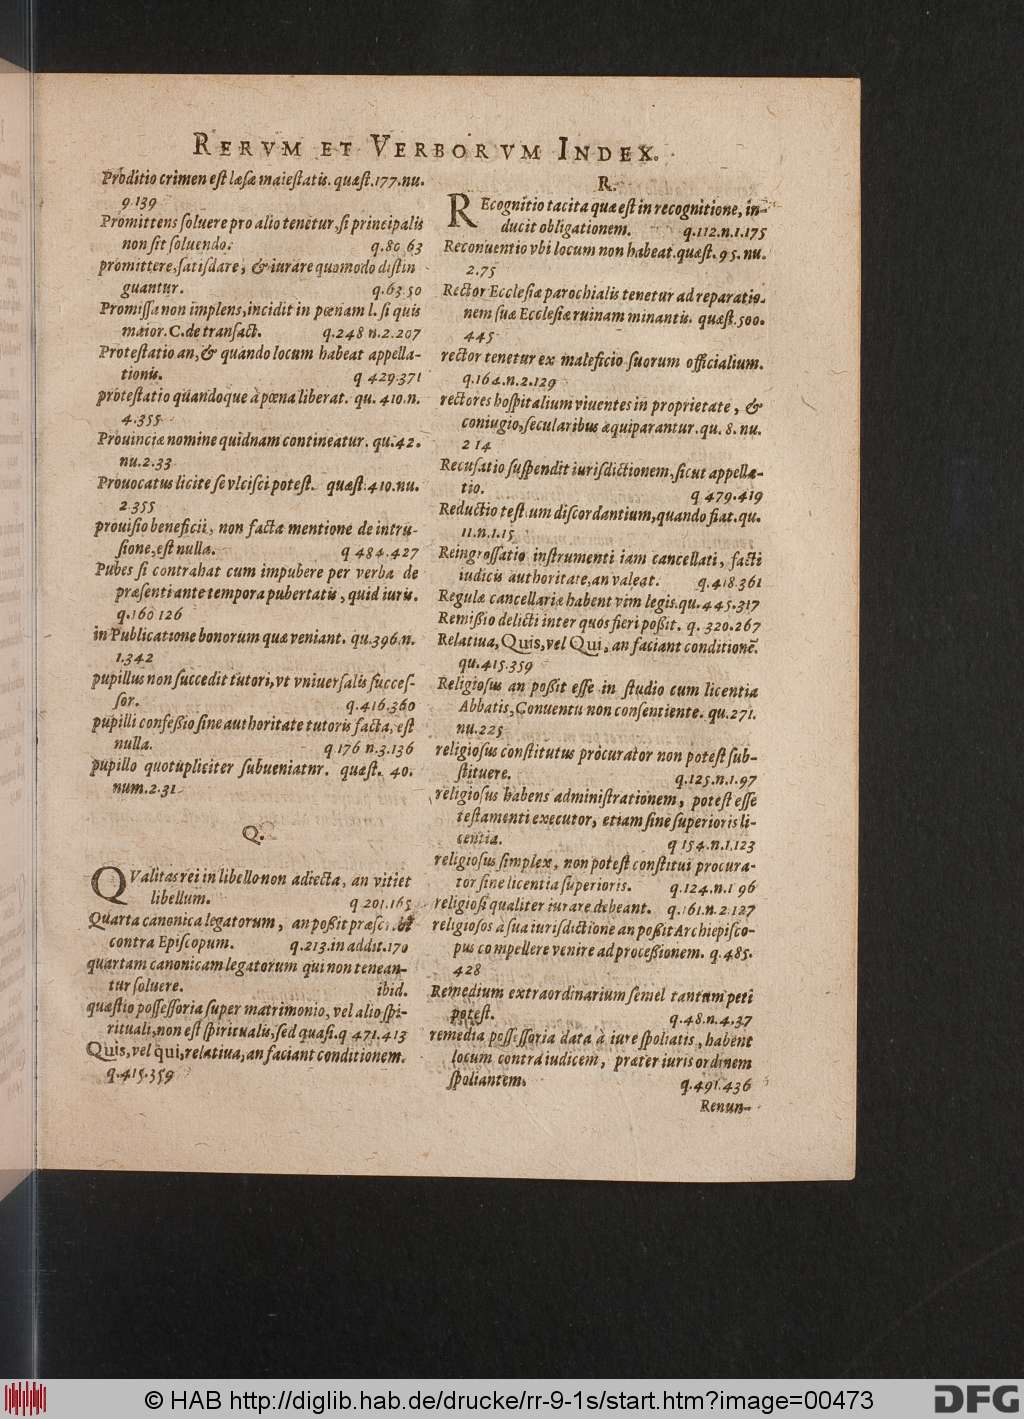 RERVM ET VERBORVM INDEX.
Proditio crimen est læsæ maiestatis. quæst.177.nu.
9.139
Promittens soluere pro alio tenetur, si principalis
non sit soluendo. q.80 63
promittere, satisdare, & iurare quomodo distin
guantur. q.63.50
Promissa non implens, incidit in pœnam l. si quis
maior. C. de transact. q.248 n.2.207
Protestatio an, & quando locum habeat appella-
tionis. q 429.371
protestatio quandoque à pœna liberat. qu. 410.n.
4.355
Prouinciæ nomine quidnam contineatur. qu.42.
nu.2.33
Prouocatus licite se vlcisci potest. quæst.410.nu.
2.355
prouisio beneficii, non facta mentione de intru-
sione, est nulla. q 484.427
Pubes si contrahat cum impubere per verba de
præsenti ante tempora pubertatis, quid iuris.
q.160 126
in Publicatione bonorum quæ veniant. qu.396.n.
1.342
pupillus non succedit tutori, vt vniuersalis succes-
sor. q.416.360
pupilli confeßio sine authoritate tutoris facta, est
nulla. q 176 n.3.136
pupillo quotupliciter subueniatnr. quæst. 40.
num.2.31
Q.
QValitas rei in libello non adiecta, an vitiet
libellum. q 201.165
Quarta canonica legatorum, an poßit
contra Episcopum. q.213.in addit.170
quartam canonicam legatorum qui non tenean-
tur soluere. ibid.
quæstio possessoria super matrimonio, vel alio spi-
rituali, non est spiritualis, sed quasi.q 471.413
Quis, vel qui, relatiua, an faciant conditionem.
q.415.359
R.
REcognitio tacita quæ est in recognitione, in-
ducit obligationem. q.112.n.1.175
Reconuentio vbi locum non habeat.quæst. 95.nu.
2.75
Rector Ecclesiæ parochialis tenetur ad reparatio-
nem suæ Ecclesiæ ruinam minantis. quæst.500.
445
rector tenetur ex maleficio suorum officialium.
q.164.n.2.129
rectores hospitalium viuentes in proprietate, &
coniugio, secularibus æquiparantur.qu. 8. nu.
2 14
Recusatio suspendit iurisdictionem, sicut appella-
tio. q 479.419
Reductio test um discordantium, quando fiat.qu.
11.n.1.15
Reingrossatio instrumenti iam cancellati, facti
iudicis authoritate, an valeat. q.418.361
Regulæ cancellariæ habent vim legis.qu.445.317
Remißio delicti inter quos fieri poßit. q. 320.267
Relatiua, Quis, vel Qui, an faciant conditionẽ.
qu.415.359
Religiosus an poßit esse in studio cum licentia
Abbatis, Conuentu non consentiente. qu.271.
nu.225
religiosus constitutus procurator non potest sub-
stituere. q.125.n.1.97
religiosus habens administrationem, potest esse
testamenti executor, etiam sine superioris li-
centia. q 154.n.1.123
religiosus simplex, non potest constitui procura-
tor sine licentia superioris. q.124.n.1 96
religiosi qualiter iurare debeant. q.161.n.2.127
religiosos à sua iurisdictione an poßit Archiepisco-
pus compellere venire ad proceßionem. q.485.
428
Remedium extraordinarium semel tantum peti
potest. q.48.n.4.37
remedia possessoria data à iure spoliatis, habent
locum contra iudicem, præter iuris ordinem
spoliantem. q.491.436
Renun-
© HAB http://diglib.hab.de/drucke/rr-9-1s/start.htm?image=00473
DFG